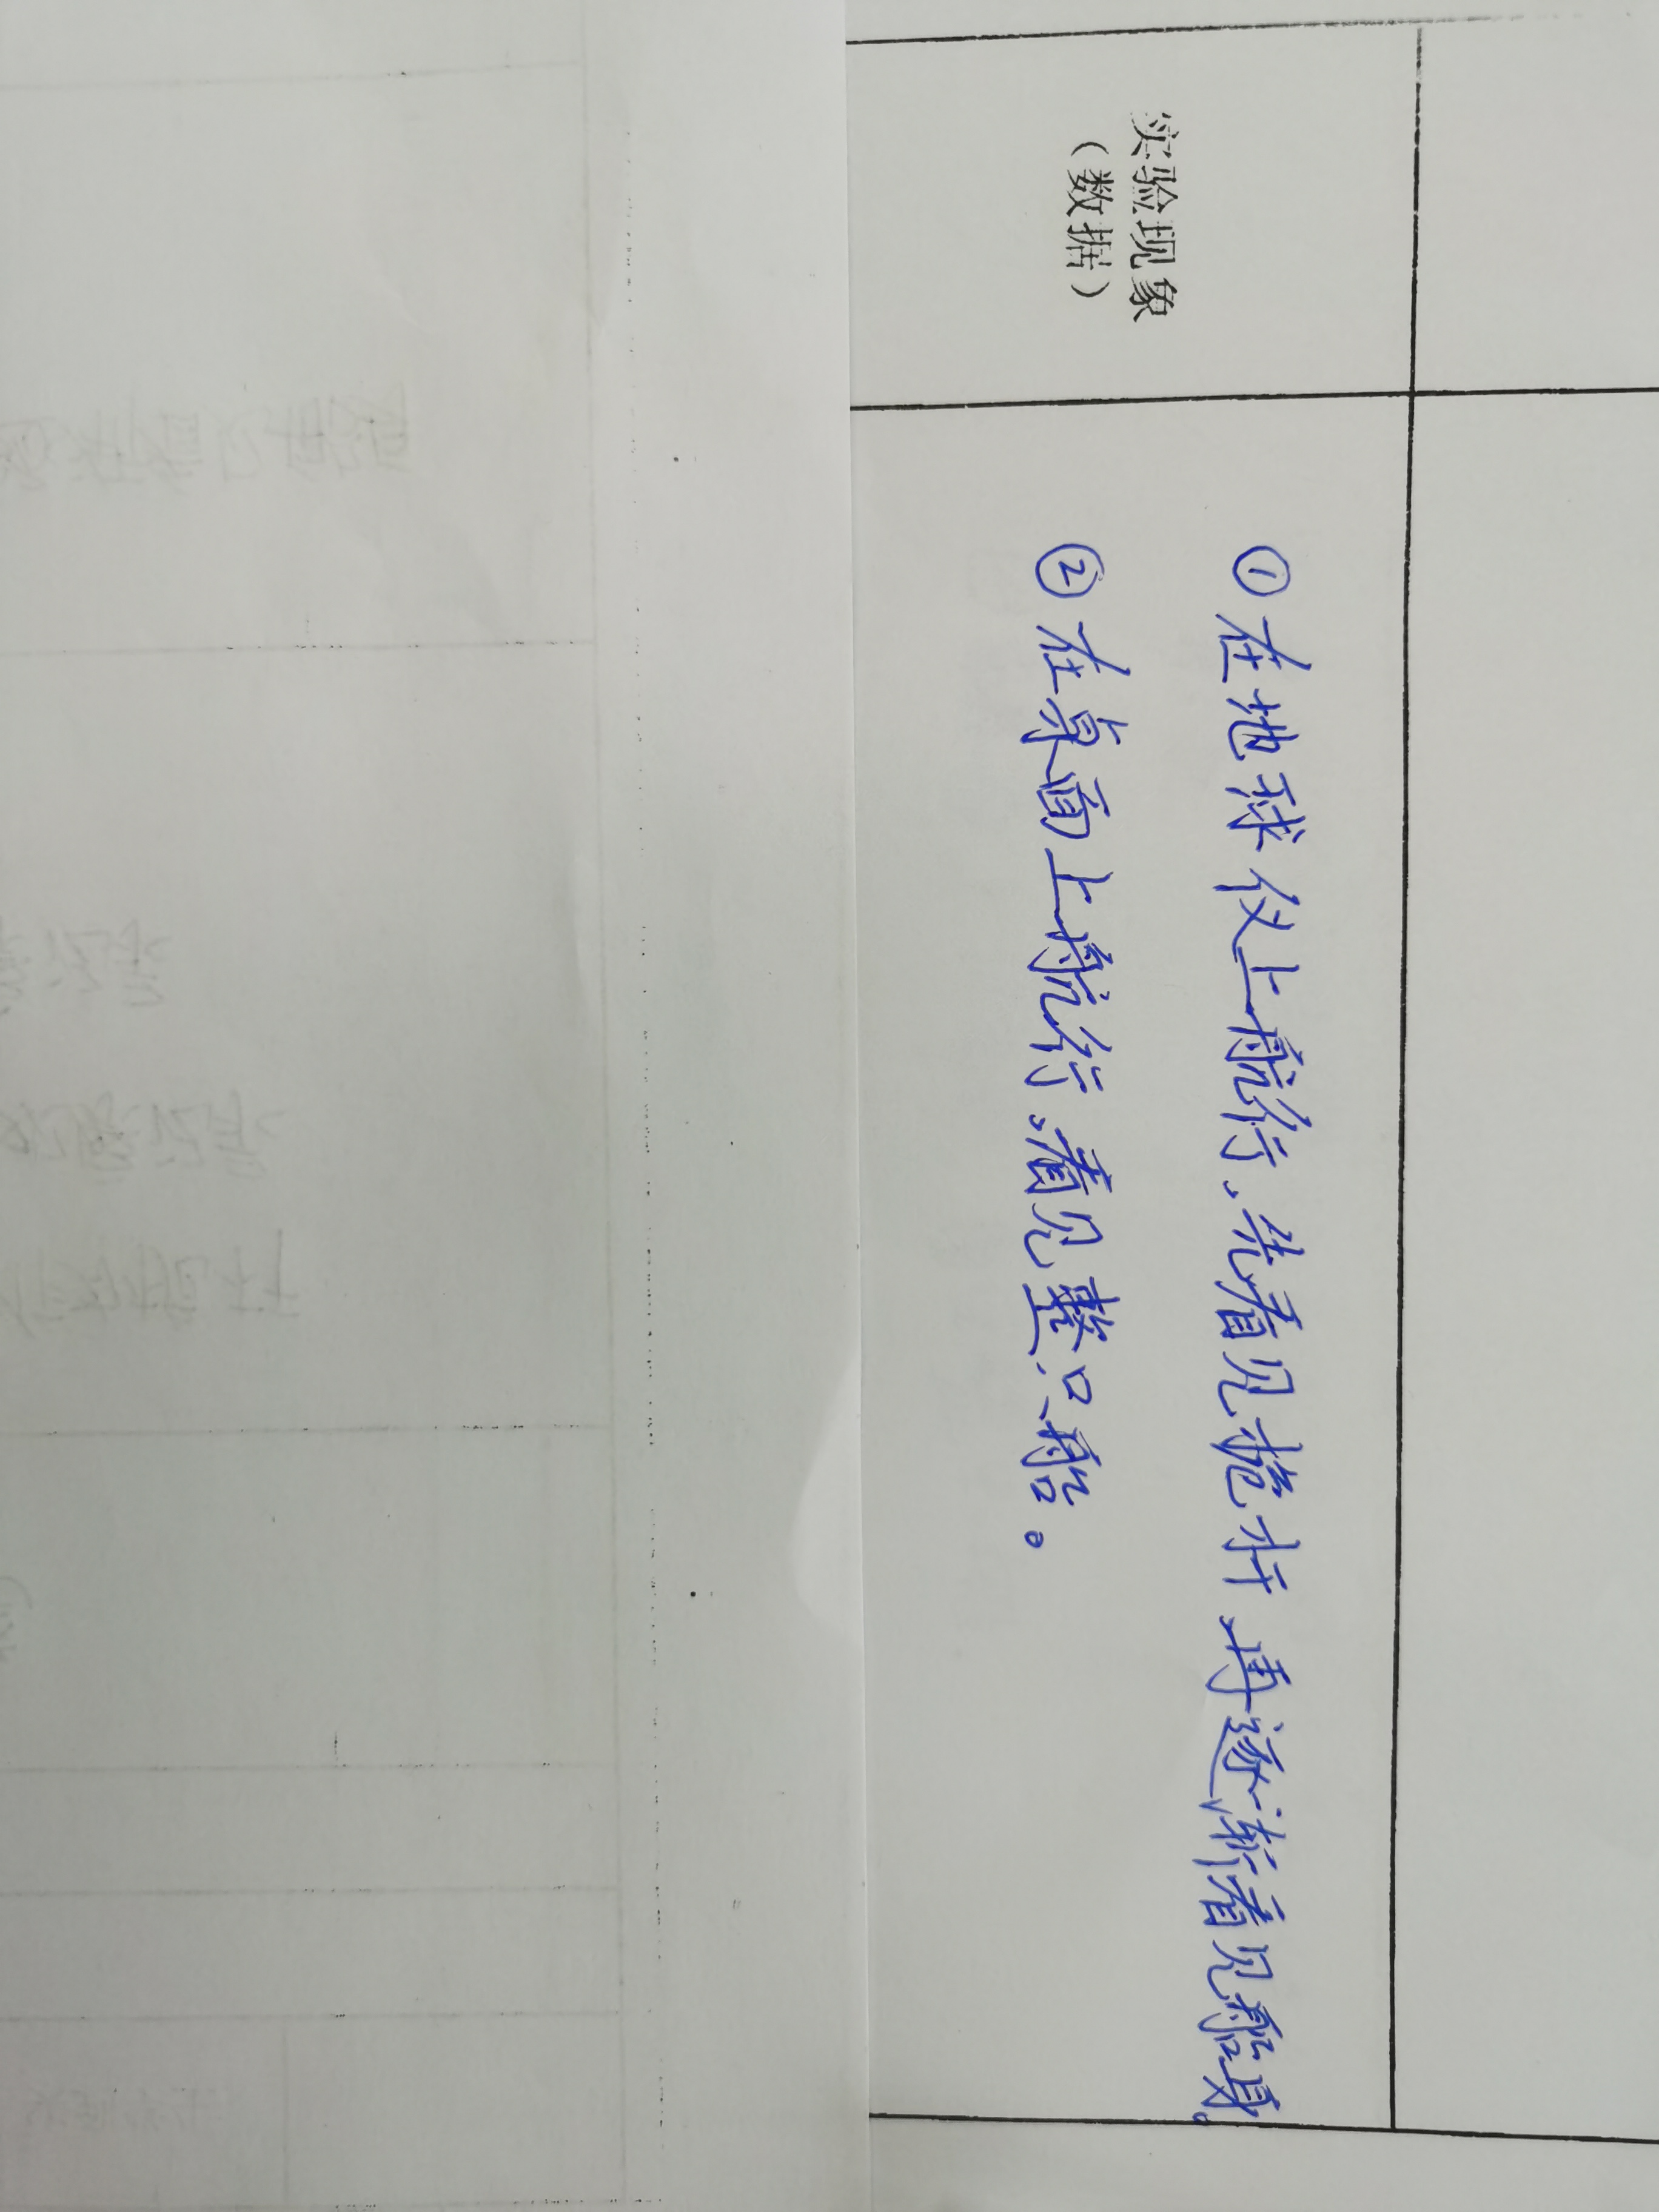 实验现象
（数据）
①在地球仪上航行，先看见桅杆，再逐渐看见船身。
②在桌面上航行，看见整只船。